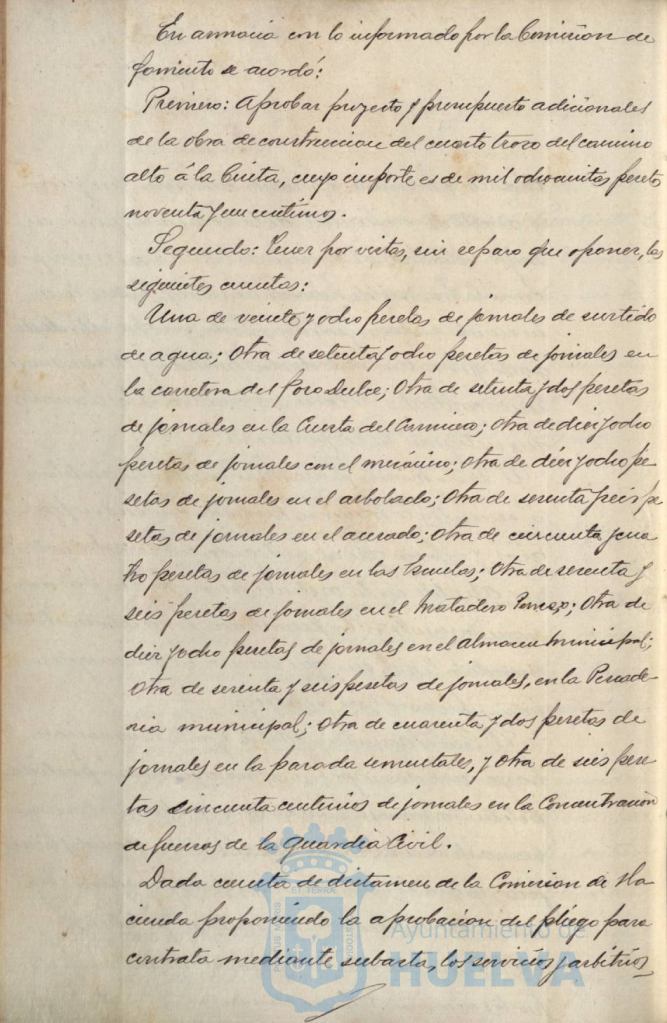 En armonia con lo informado por la Comision de
fomento se acordó:
Primero: Aprobar proyecto y presupuesto adicionales
de la obra de construccion del cuarto trozo del camino
alto á la Cinta, cuyo importe es de mil ochocientas pesetas
noventa y un centimos.
Segundo: Tener por vistas, sin reparo que oponer, las
siguientes cuentas:
Una de veinte y ocho pesetas de jornales de surtido
de agua; Otra de setenta y ocho pesetas de jornales en
la carretera del Pozo Dulce; Otra de setenta y dos pesetas
de jornales en la Cuesta del Carnicero; Otra de diez y ocho
pesetas de jornales con el mecánico; Otra de diez y ocho pe
setas de jornales en el arbolado; Otra de sesenta y seis pe
setas de jornales en el acerado; Otra de cincuenta y cua
tro pesetas de jornales en las Escuelas; Otra de sesenta y
seis pesetas de jornales en el Matadero; Otra de
diez y ocho pesetas de jornales en el almacen municipal;
Otra de sesenta y seis pesetas de jornales, en la Pescade
ria municipal; Otra de cuarenta y dos pesetas de
jornales en la parada sementales, y Otra de seis pese
tas cincuenta centimos de jornales en la Concentracion
de fuerzas de la Guardia Civil.
Dada cuenta de dictamen de la Comision de Ha
cienda proponiendo la aprobacion del pliego para
contrata mediante subasta, los servicios y arbitrios
Ayuntamiento de
HUELVA